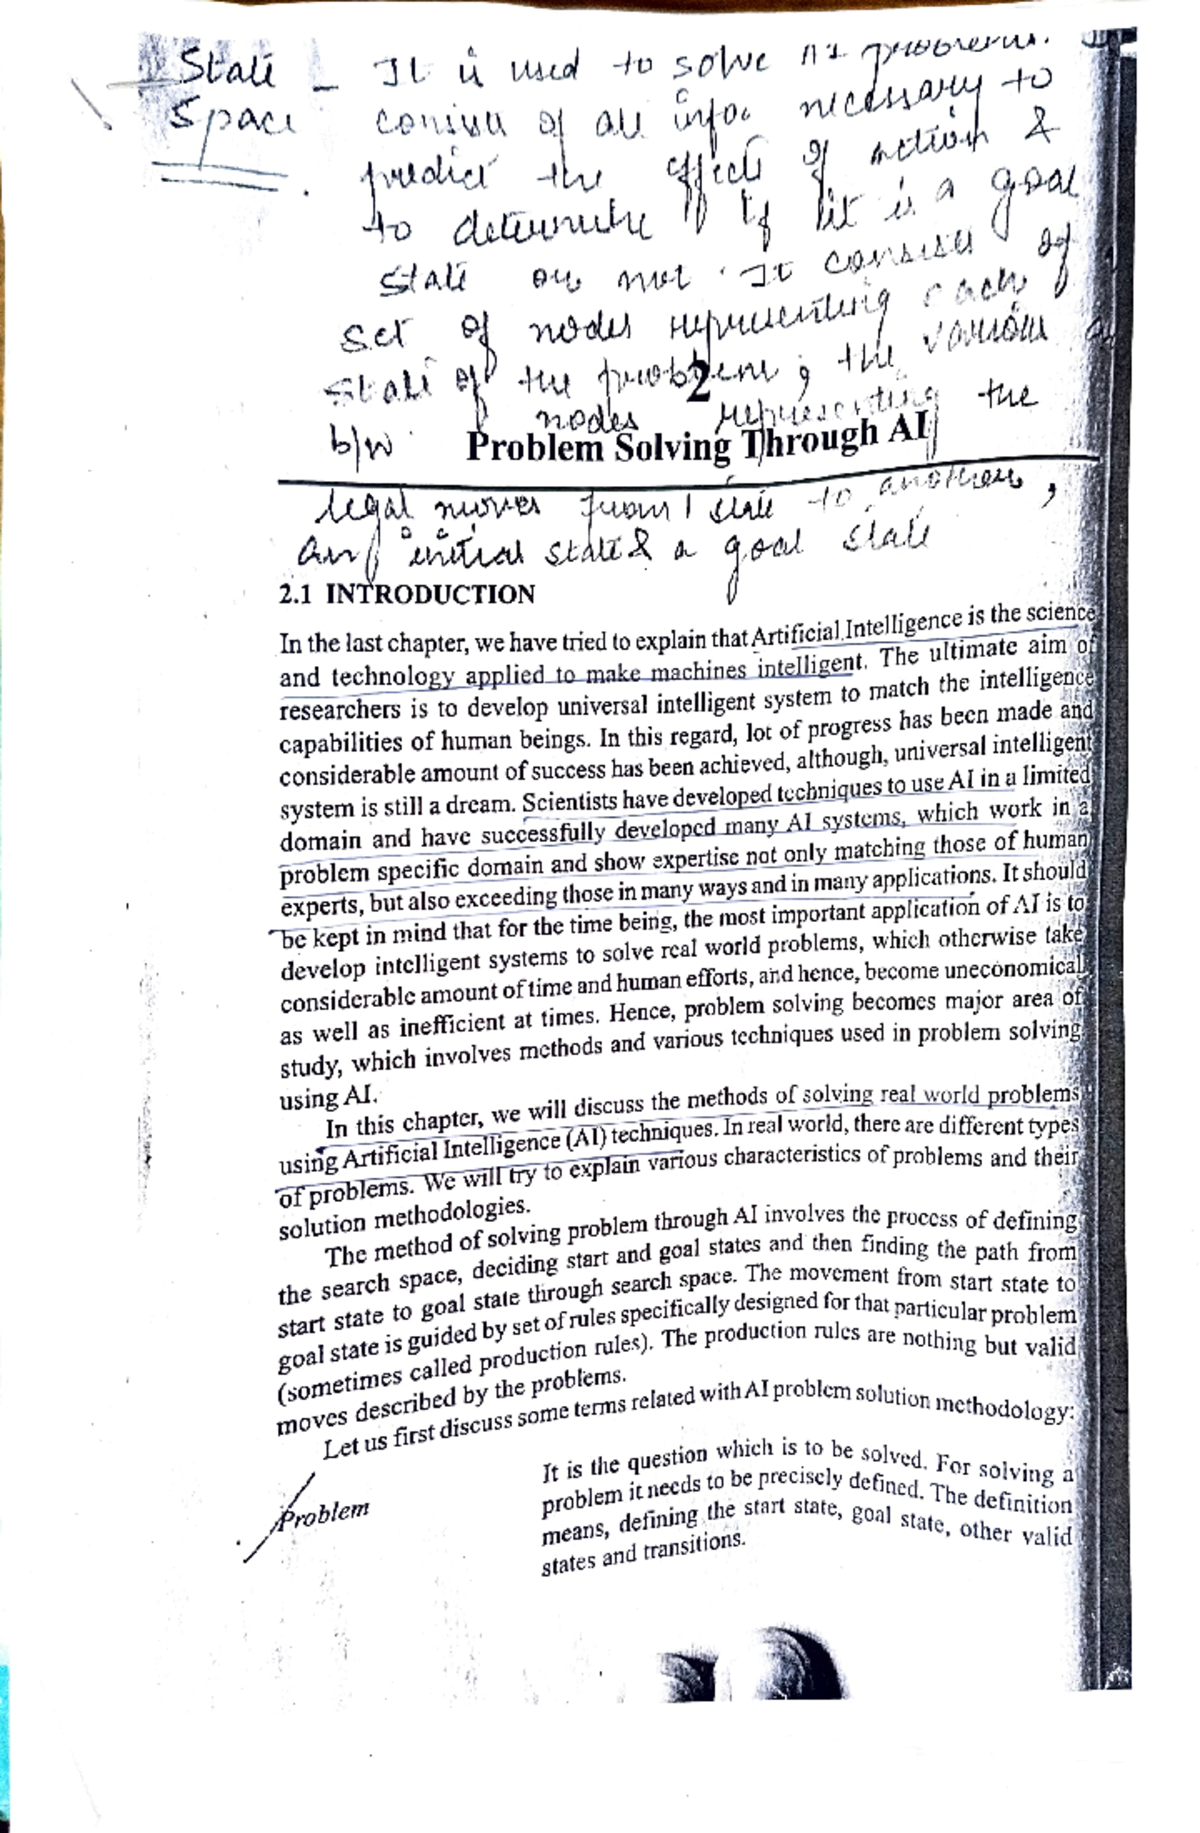 State - It is used to solve AI problems. It
Space consists of all info. necessary to
predict the effects of action &
to determine if it is a goal
state or not. It consists of
set of nodes representing each
state of the problem, the various
2
b/w nodes representing the
Problem Solving Through AI
legal moves from 1 state to another,
an initial state & a goal state
2.1 INTRODUCTION
In the last chapter, we have tried to explain that Artificial Intelligence is the science
and technology applied to make machines intelligent. The ultimate aim of
researchers is to develop universal intelligent system to match the intelligence
capabilities of human beings. In this regard, lot of progress has been made and
considerable amount of success has been achieved, although, universal intelligent
system is still a dream. Scientists have developed techniques to use AI in a limited
domain and have successfully developed many AI systems, which work in a
problem specific domain and show expertise not only matching those of human
experts, but also exceeding those in many ways and in many applications. It should
be kept in mind that for the time being, the most important application of AI is to
develop intelligent systems to solve real world problems, which otherwise take
considerable amount of time and human efforts, and hence, become uneconomical
as well as inefficient at times. Hence, problem solving becomes major area of
study, which involves methods and various techniques used in problem solving
using AI.
In this chapter, we will discuss the methods of solving real world problems
using Artificial Intelligence (AI) techniques. In real world, there are different types
of problems. We will try to explain various characteristics of problems and their
solution methodologies.
The method of solving problem through AI involves the process of defining
the search space, deciding start and goal states and then finding the path from
start state to goal state through search space. The movement from start state to
goal state is guided by set of rules specifically designed for that particular problem
(sometimes called production rules). The production rules are nothing but valid
moves described by the problems.
Let us first discuss some terms related with AI problem solution methodology:
Problem It is the question which is to be solved. For solving a
problem it needs to be precisely defined. The definition
means, defining the start state, goal state, other valid
states and transitions.